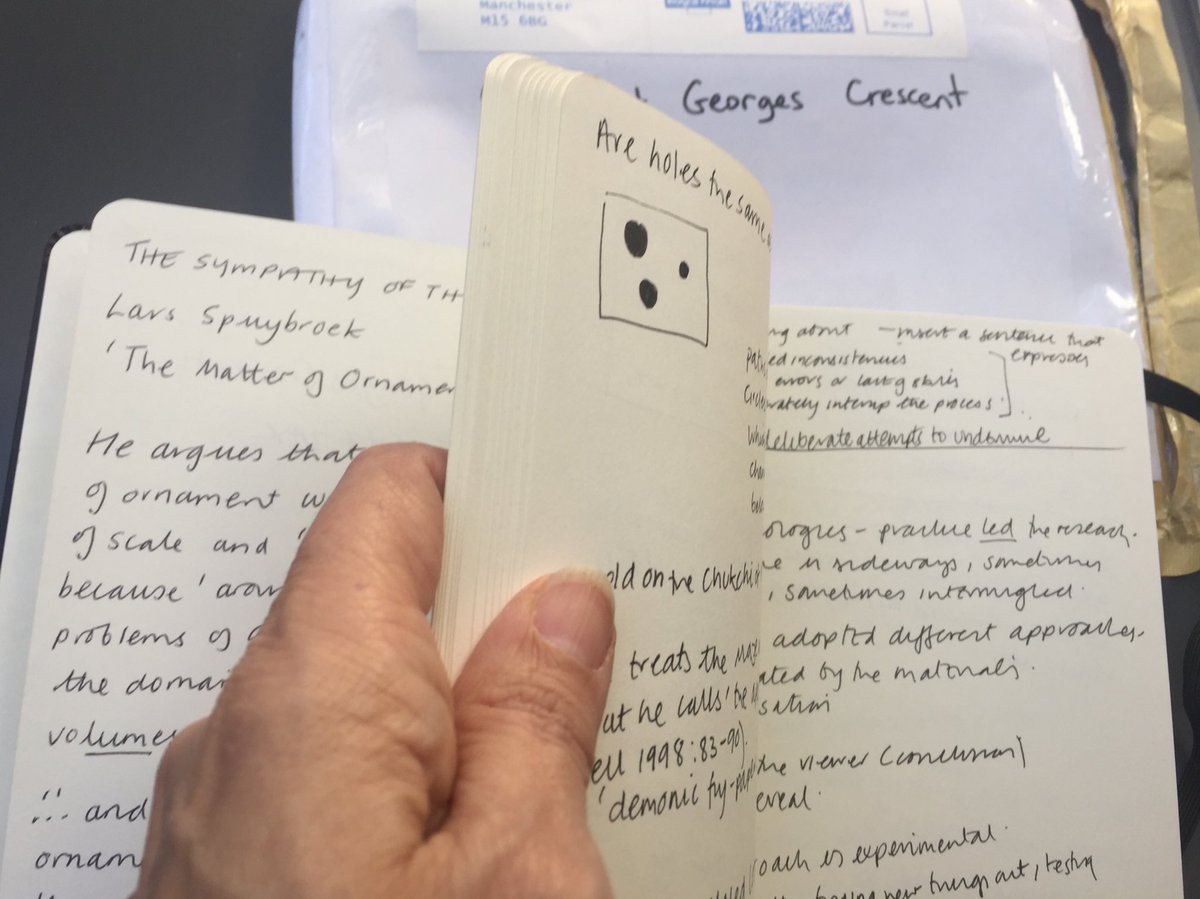 Manchester
M15 6BG
Small
Parcel
Georges Crescent
THE SYMPATHY OF TH
Lars Spuybroek
'The Matter of Ornamen
He argues that
of ornament w
of scale and
because ' arou
problems of
the domai
volumes
... and
ornam
Are holes the same
old on the Chukchi
treats the maze
at he calls 'the
ell 1998:83-90).
'demonic fly-pap
ng about — insert a sentence that
expresses
ed inconsistencies
errors or
rately interrup the process
deliberate attempts to undermine
ologies - practice led the research.
e in sideways, sometimes
, sometimes intermingled.
adopted different approaches.
ated by the materials.
sation
the viewer (conclusion)
eveal.
oach is experimental.
new things out, testing